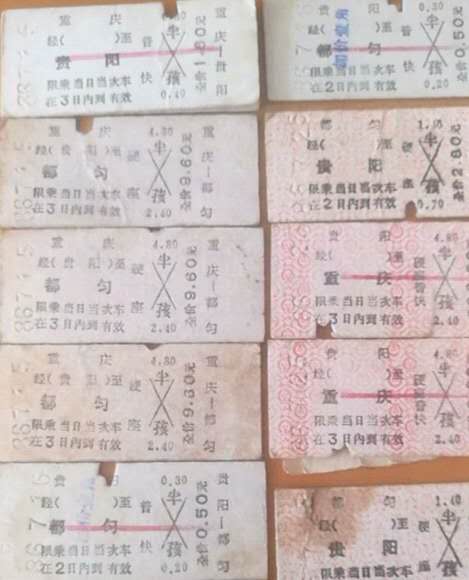 重庆 0.80
经( )至 普 半
贵阳 快 孩
全价1.60元
重庆—贵阳
限乘当日当次车
在3日内到有效 0.40
重庆 4.80
经(贵阳)至 硬 半
都匀 座 孩
全价9.60元
重庆—都匀
限乘当日当次车
在3日内到有效 2.40
重庆 4.80
经(贵阳)至 硬 半
都匀 座 孩
全价9.60元
重庆—都匀
限乘当日当次车
在3日内到有效 2.40
重庆 4.80
经(贵阳)至 硬 半
都匀 座 孩
重庆—都匀
限乘当日当次车
在3日内到有效 2.40
贵 0.30
经( )至 普 半
都匀 快 孩
全价0.50元
贵阳—都匀
限乘当日当次车
在2日内到有效 0.20
贵阳 0.30
经( )至 普 半
都匀 快 孩
全价0.50元
限乘当日当次车
在2日内到有效 0.20
都匀
经( )至 硬 半
贵阳 座 孩
全价2.80元
限乘当日当次车
在2日内到有效 0.70
贵阳 4.80
经( )至 半
重庆 孩
限乘当日当次车
在3日内到有效 2.40
贵阳
经( )至 半
重庆 孩
限乘当日当次车
在3日内到有效 2.40
匀 1.40
经( )至 硬 半
贵阳 座 孩
限乘当日当次车